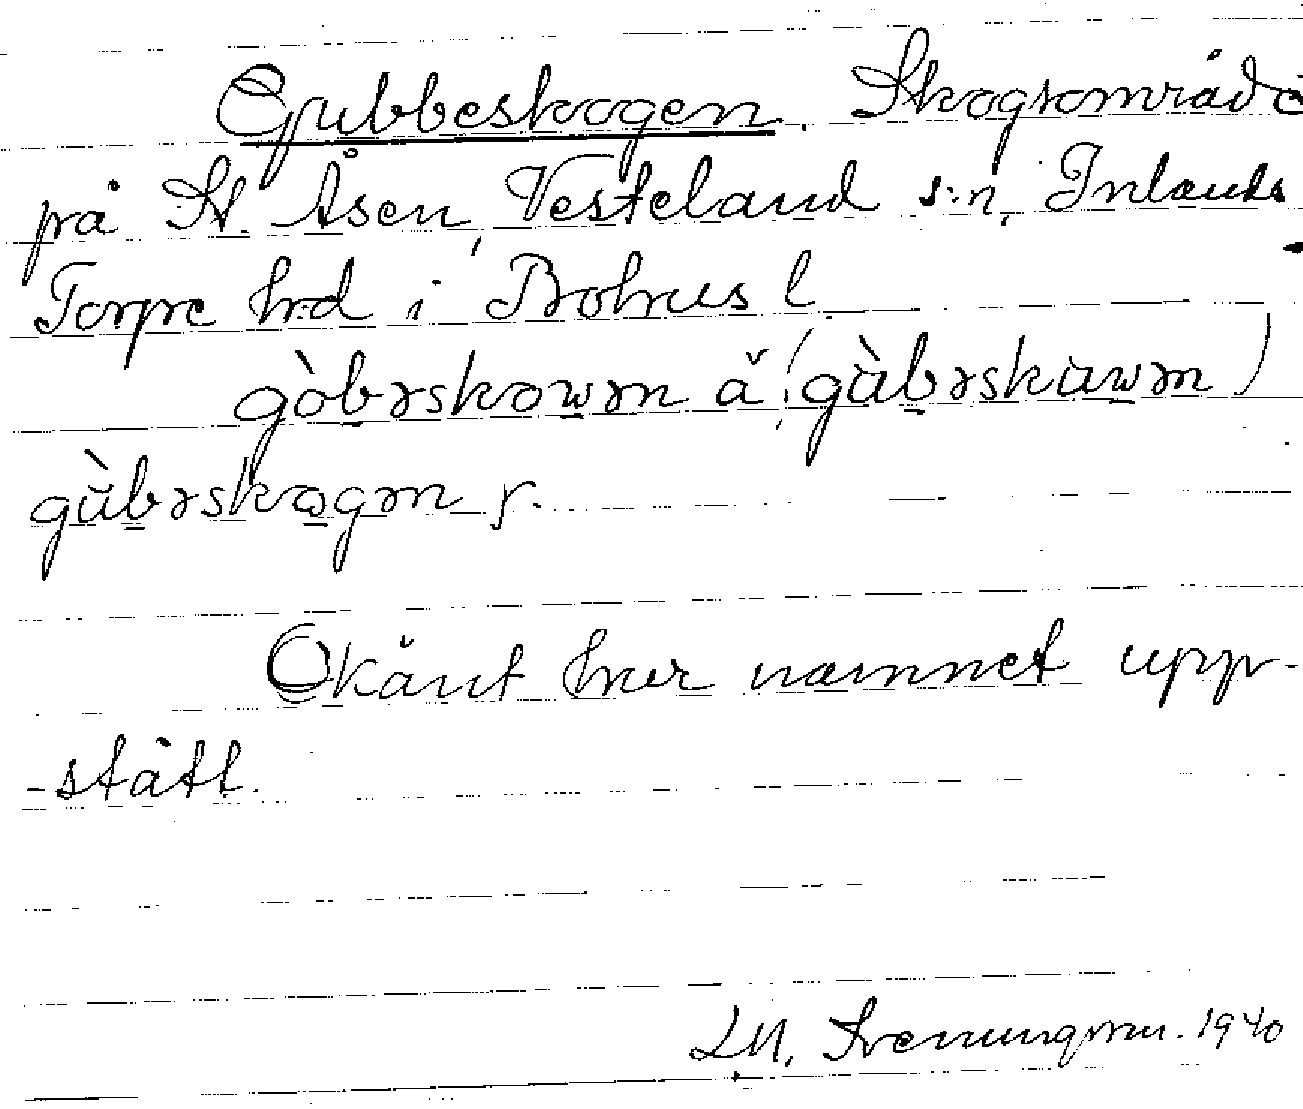 Gubbeskogen. Skogsområde
på St. Åsen, Vesteland s:n, Inlands
Torpe hrd i Bohus l
gòbəskowən ä (gùbəskuwən)
gùbəskogən y.
Okänt hur namnet upp-
-stått.
1940